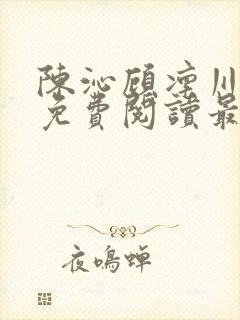 陳沁顧凜川
免費閱讀最
夜鳴蟬